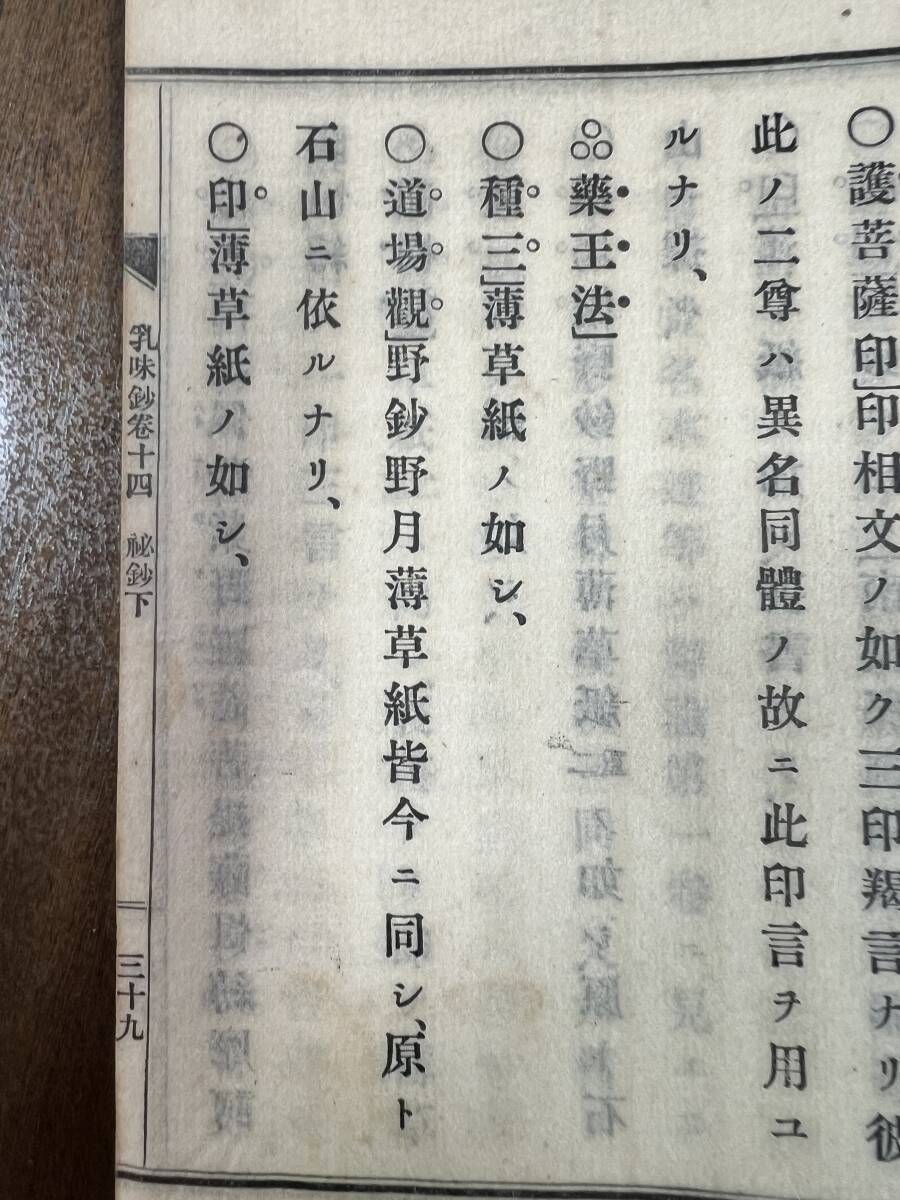 ○護菩薩印」印相文ノ如ク三印羯言ナリ彼
此ノ二尊ハ異名同體ノ故ニ此印言ヲ用ユ
ルナリ、
藥王法」
○種三」薄草紙ノ如シ、
○道場觀」野鈔野月薄草紙皆今ニ同シ、原ト
石山ニ依ルナリ、
○印」薄草紙ノ如シ、
乳味鈔卷十四 祕鈔下
三十九